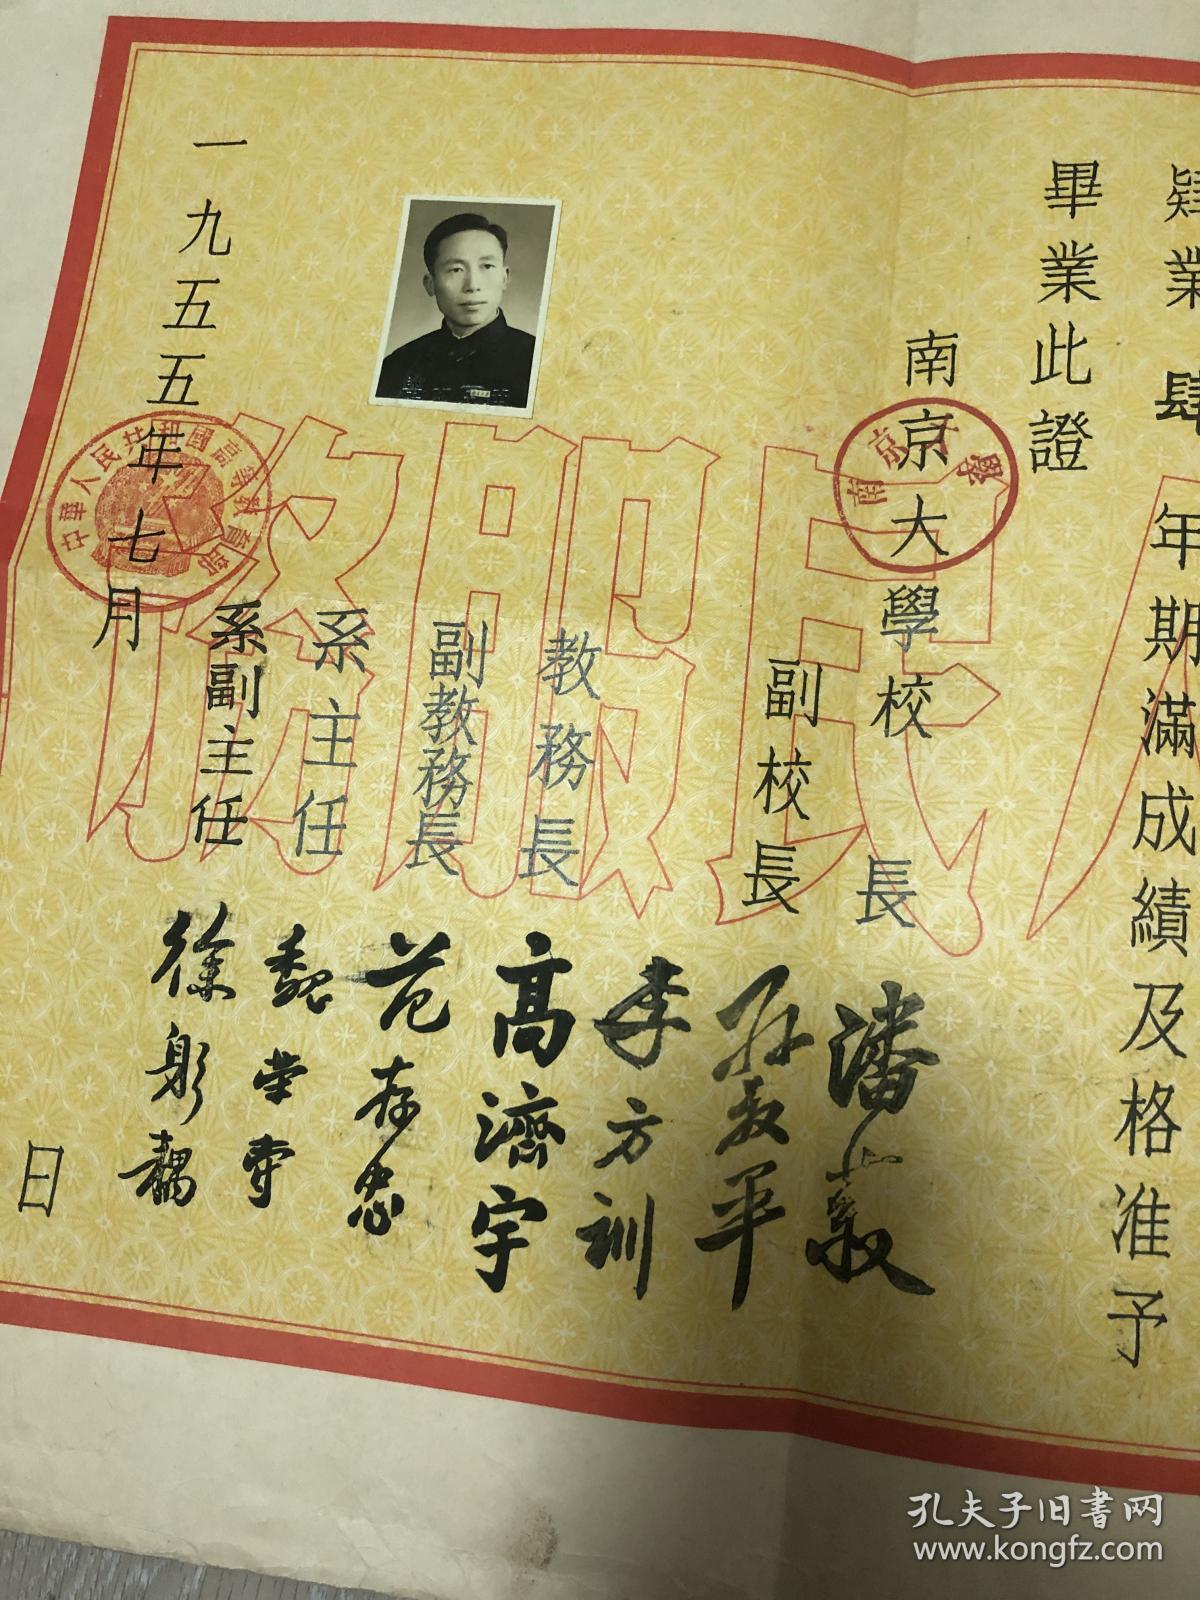 肄業肆年期滿成績及格准予
畢業此證
南京大學校長 潘菽
副校長 孫叔平
李方訓
教務長 高濟宇
副教務長 范存忠
系主任 魏榮爵
系副主任 徐躬耦
一九五五年七月 日
中華人民共和國高等教育部
南京大學
服務
人民
孔夫子旧书网
www.kongfz.com